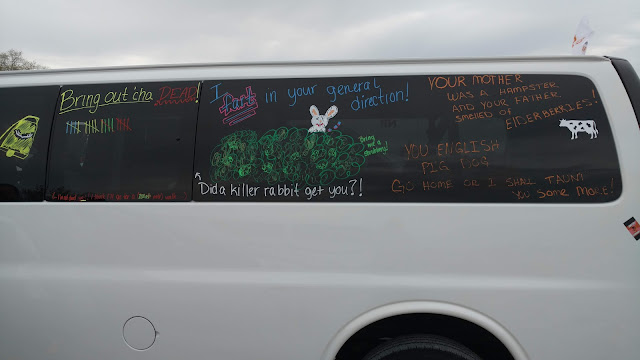 Bring out'cha DEAD!
I Fart in your general
direction!
Bring
me a
shrubbery
Did a killer rabbit get you?!
YOUR MOTHER
WAS A HAMPSTER
AND YOUR FATHER
smelled of
ElDERBERRIES!
YOU ENGLISH
PIG DOG
GO HOME OR I SHALL TAUNT
YOU SOME MORE!